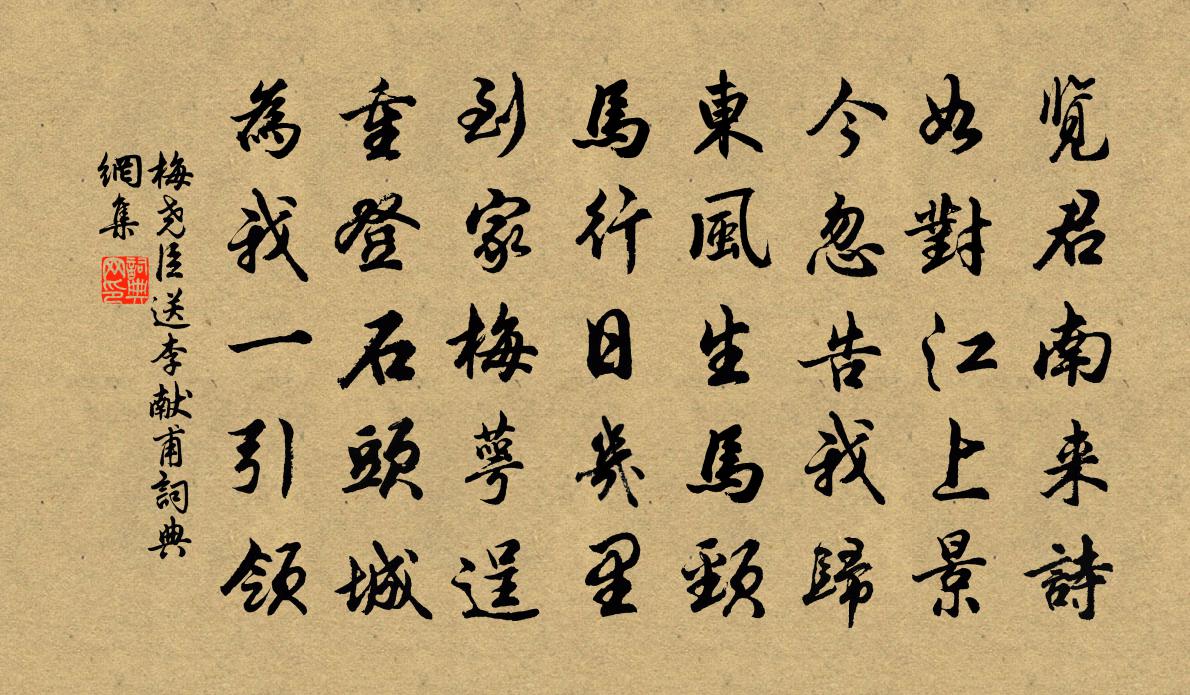 覽君南来詩
如對江上景
今忽告我歸
東風生馬頸
馬行日幾里
到家梅萼逞
重登石頭城
為我一引領
梅尧臣送李献甫詞典
網集
詞典
网印